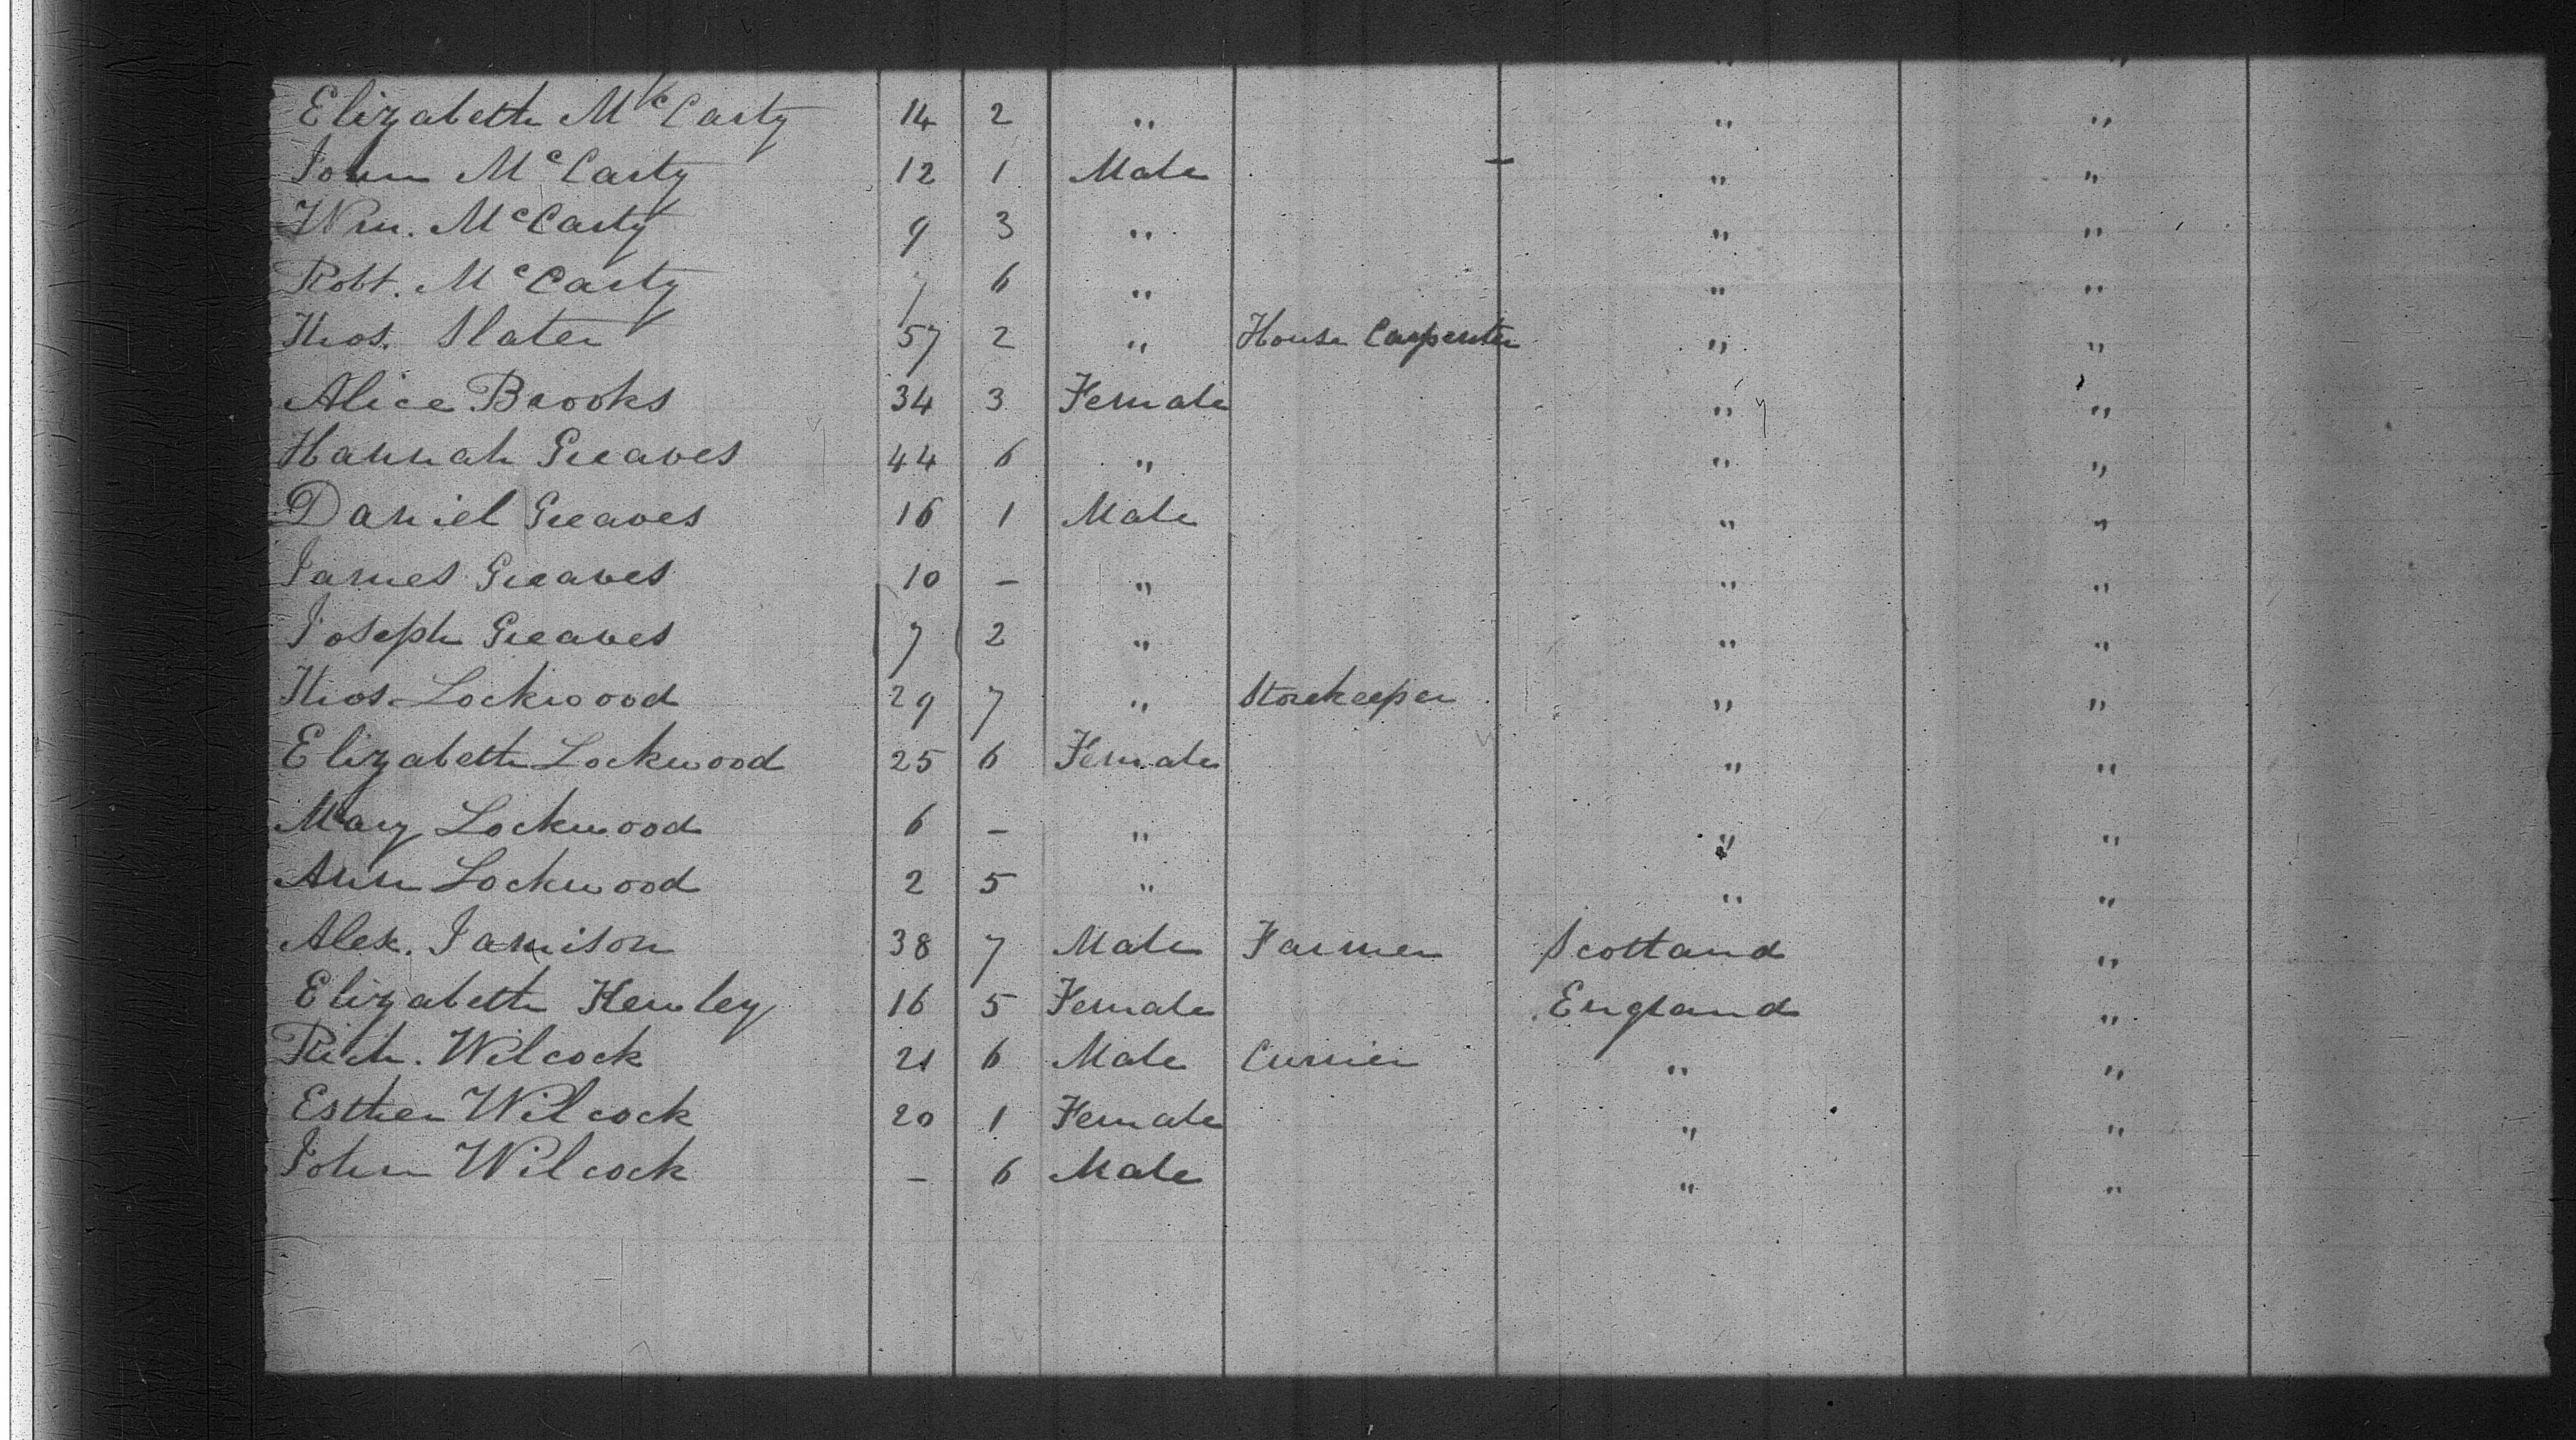 Elizabeth McCarty 14 2 " " "
John McCarty 12 1 Male " "
Wm. McCarty 9 3 " " "
Robt. McCarty 7 6 " " "
Thos. Slater 57 2 " House Carpenter " "
Alice Brooks 34 3 Female " "
Hannah Greaves 44 6 " " "
Daniel Greaves 16 1 Male " "
James Greaves 10 – " " "
Joseph Greaves 7 2 " " "
Thos. Lockwood 29 7 " Storekeeper " "
Elizabeth Lockwood 25 6 Female " "
Mary Lockwood 6 – " " "
Ann Lockwood 2 5 " " "
Alex. Jamison 38 7 Male Farmer Scotland "
Elizabeth Hemley 16 5 Female England "
Rich. Wilcock 21 6 Male Currier " "
Esther Wilcock 20 1 Female " "
John Wilcock – 6 Male " "